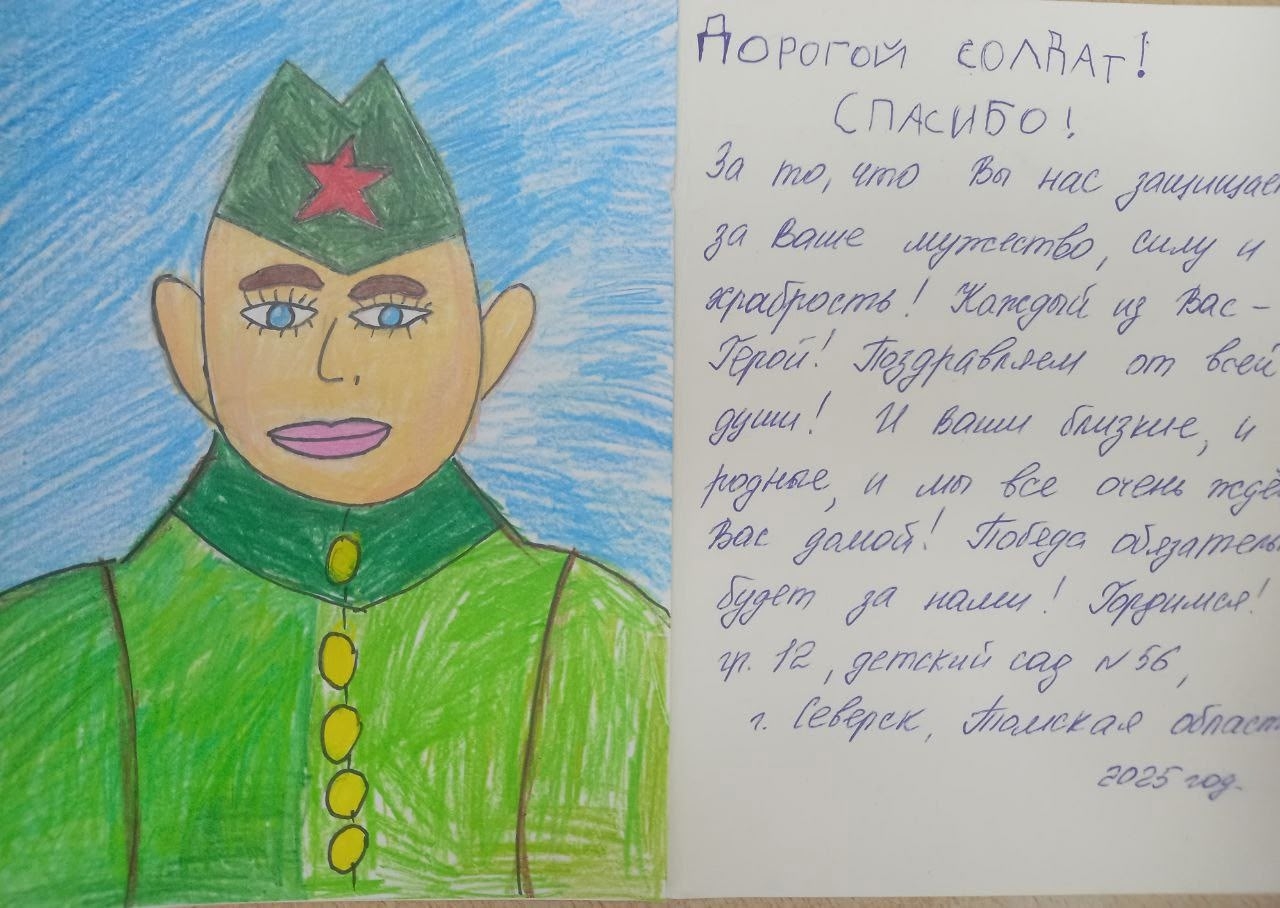 Дорогой солдат!
Спасибо!
За то, что Вы нас защищает
за Ваше мужество, силу и
храбрость! Каждый из Вас –
Герой! Поздравляем от всей
души! И Ваши близкие, и
родные, и мы все очень ждё
Вас домой! Победа обязатель
будет за нами! Гордимся!
гр. 12, детский сад №56,
г. Северск, Томская област
2025 год.